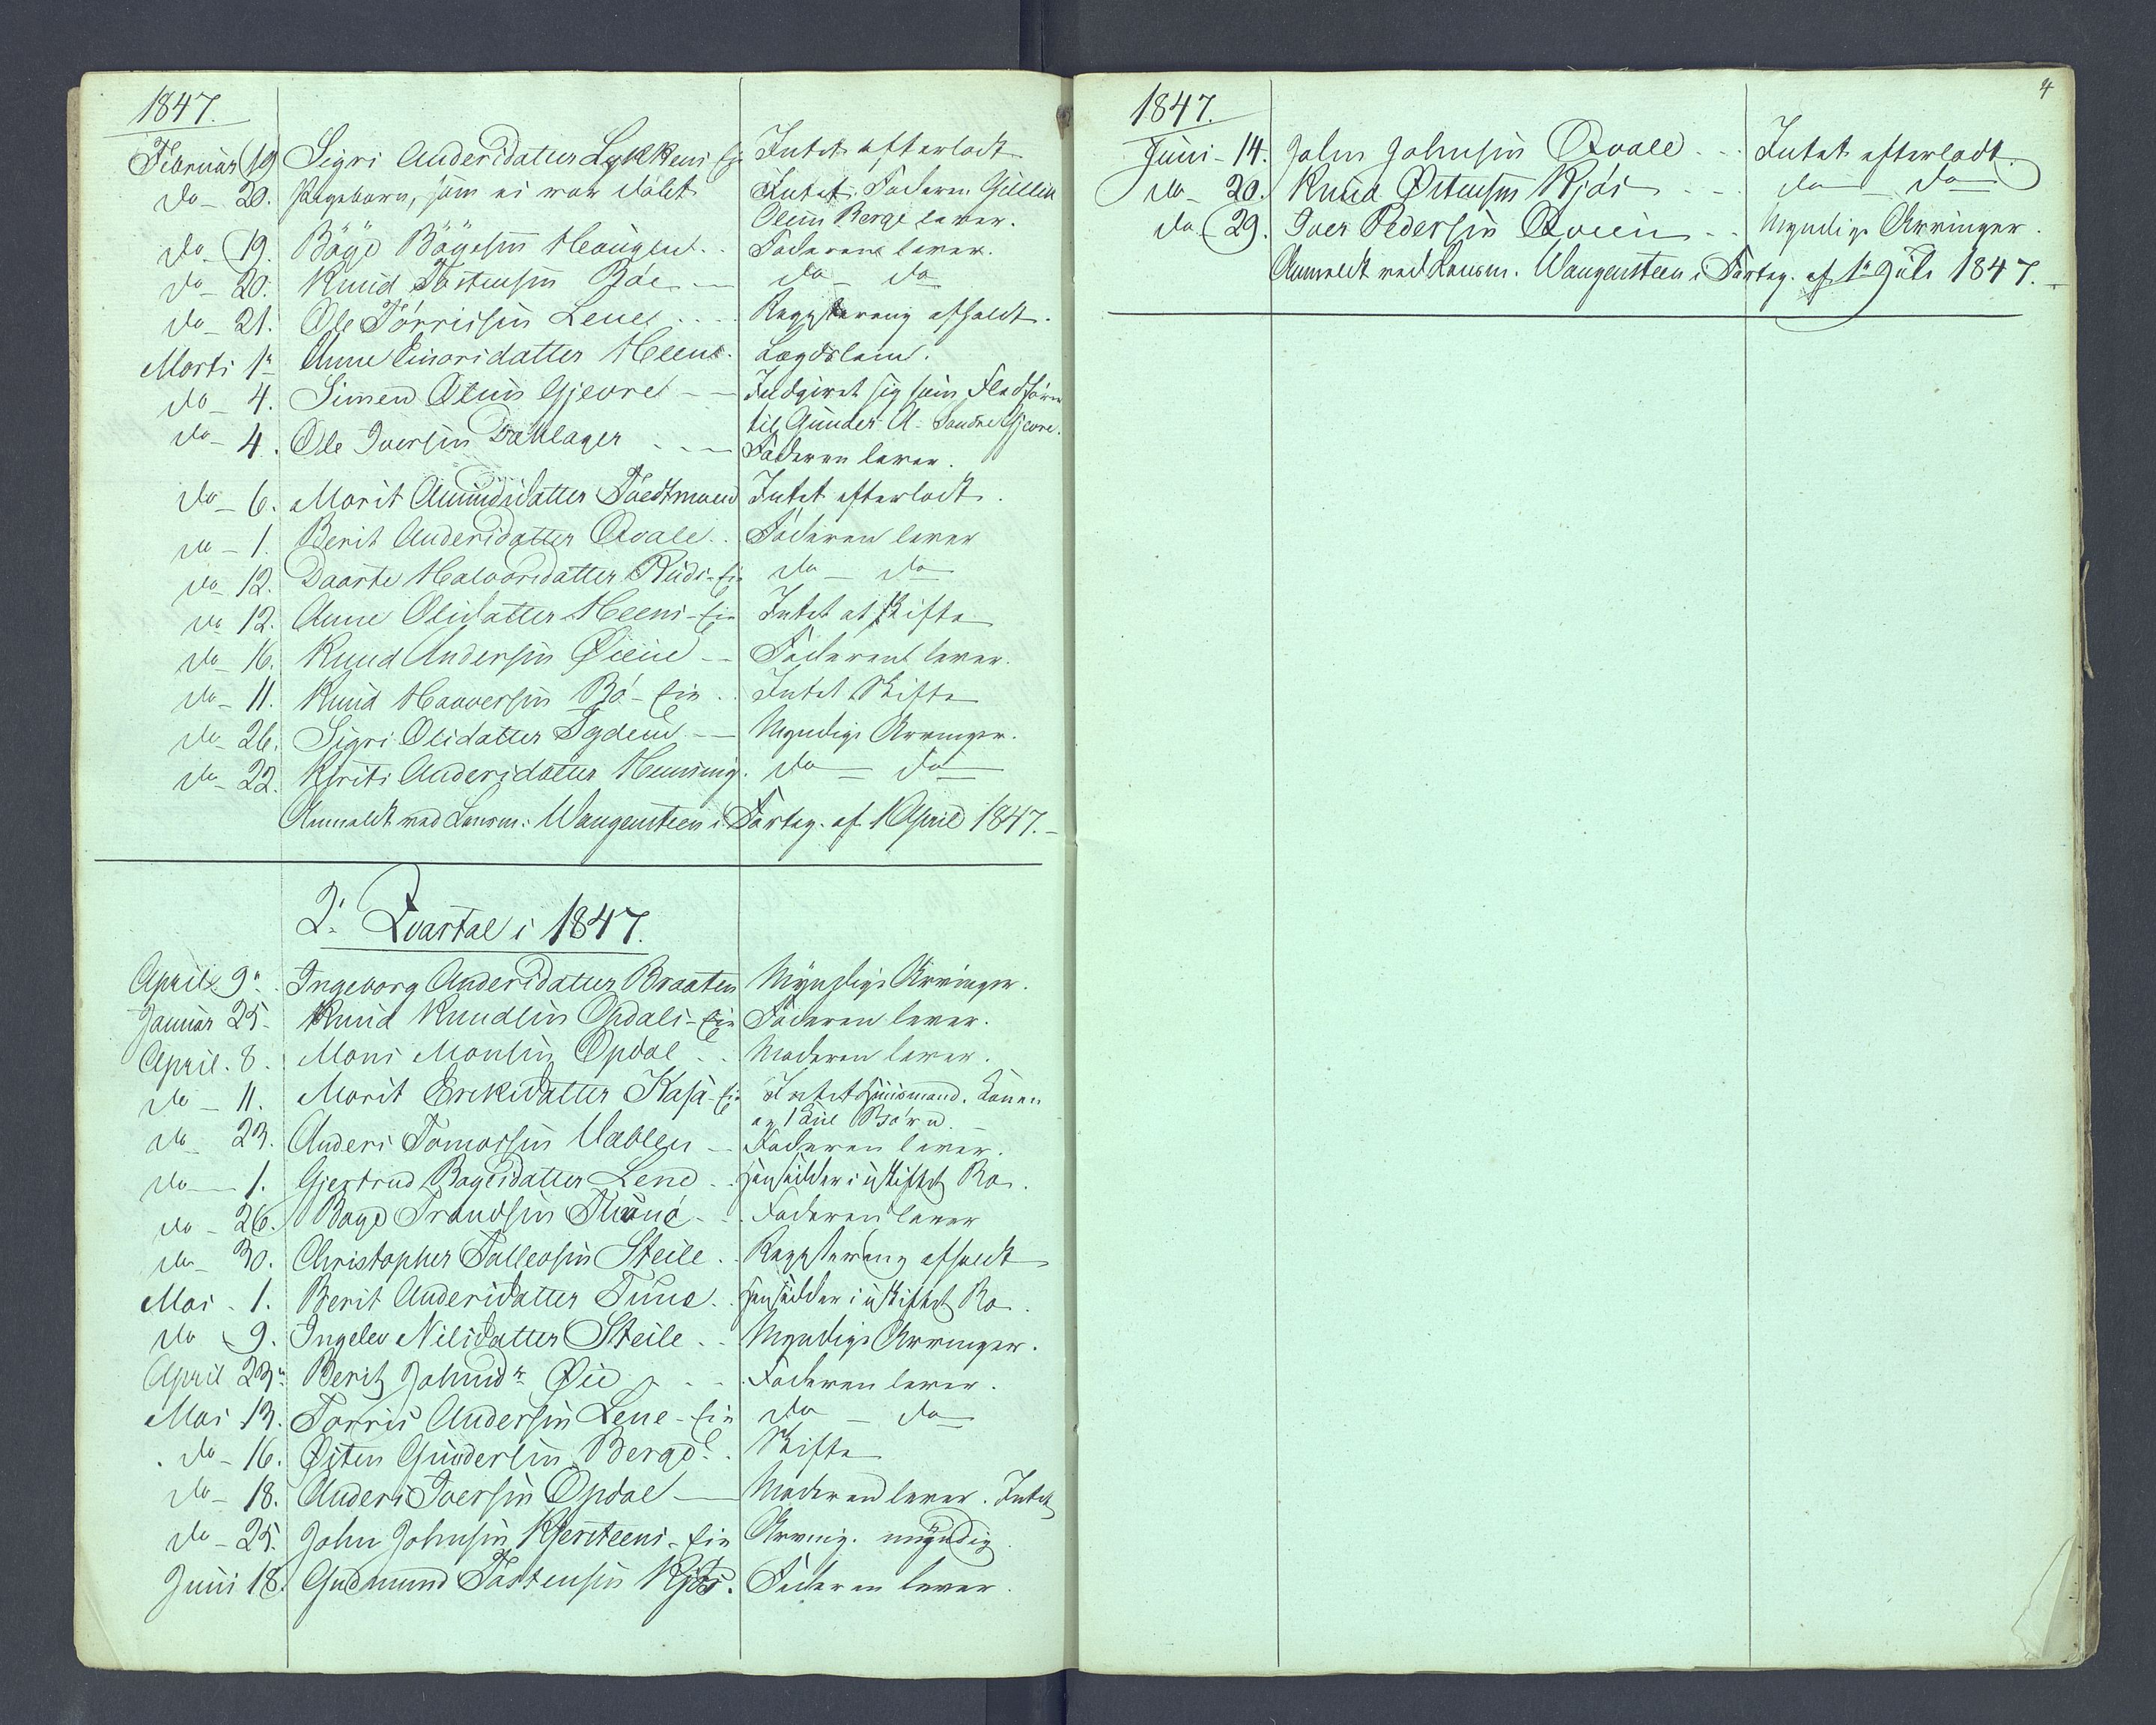 1847.
Februar 19 Sigri Andersdatter Lykkens-Eie Intet efterladt
do - 20. Pigebarn, som ei var døbt Intet. Faderen Gullik
Olsen Berge lever.
do 19. Böye Böyesen Haugen Faderen lever.
do - 20. Knud Tostensen Böe do - do
do - 21. Ole Törrissen Lene Registrering afholdt.
Marti 1ste Anne Einarsdatter Heens. Lægdslem.
do - 4. Simen Olsen Gjevre Indgivet sig som Fledføring
til Gunder A. Søndre Gjevre.
do - 4. Ole Iversen Dahlager Faderen lever.
do - 6. Marit Amundsdatter Intet efterladt.
do - 1. Berit Andersdatter Qvale Faderen lever
do 12. Daarte Halvorsdatter Ruds-Eie do - do
do 12. Anne Olsdatter Heens-Eie Intet at skifte
do - 16. Knud Andersen Øiene Faderen lever.
do - 11. Knud Haaversen Bö-Eie Intet Skifte
do - 26. Sigri Olsdatter Myndige Arvinger.
do - 22. Kjersti Andersdatter Hensing. do - do
Anmeldt ved Lensm. Wangensteen i Forteg. af 1 April 1847.
2. Qvartal i 1847.
April 9. Ingeborg Andersdatter Braaten Myndige Arvinger.
Januar 25 Knud Knudsen Opdals-Eie Faderen lever.
April. 8. Mons Monsen Opdal Moderen lever.
do - 11. Marit Eriksdatter Kasa-Eie Intet Huusmand. Konen
og 1 Barn.
do 23. Anders Tomassen Vablen Faderen lever.
do - 1. Gjertrud Bøyesdatter Lene hensidder i uskiftet Bo.
do - 26. Boye Trondsen Faderen lever
do - 30. Christopher Tollevsen Steile Registrering afholdt
Mai - 1. Berit Andersdatter Tune hensidder i uskiftet Bo.
do 9. Ingelev Nilsdatter Steile Myndige Arvinger.
April 23. Berit Johnsdr Øie Faderen lever.
Mai 13. Torris Andersen Lene-Eie do - do
do - 16. Østen Gundersen Berge Skifte
do - 18. Anders Iversen Opdal Moderen lever. Intet
do - 25. John Johnsen Kjersteens-Eie Arving. myndig
Juni 18. Gudmund Tostensen Kjös. Faderen lever.
4
1847.
Juni - 14. John Johnsen Qvale Intet efterladt.
do - 20. Knud Østensen Kjös do - do
do 29. Iver Pedersen Qveen Myndige Arvinger.
Anmeldt ved Lensm. Wangensteen i Forteg. af 1ste Juli 1847.